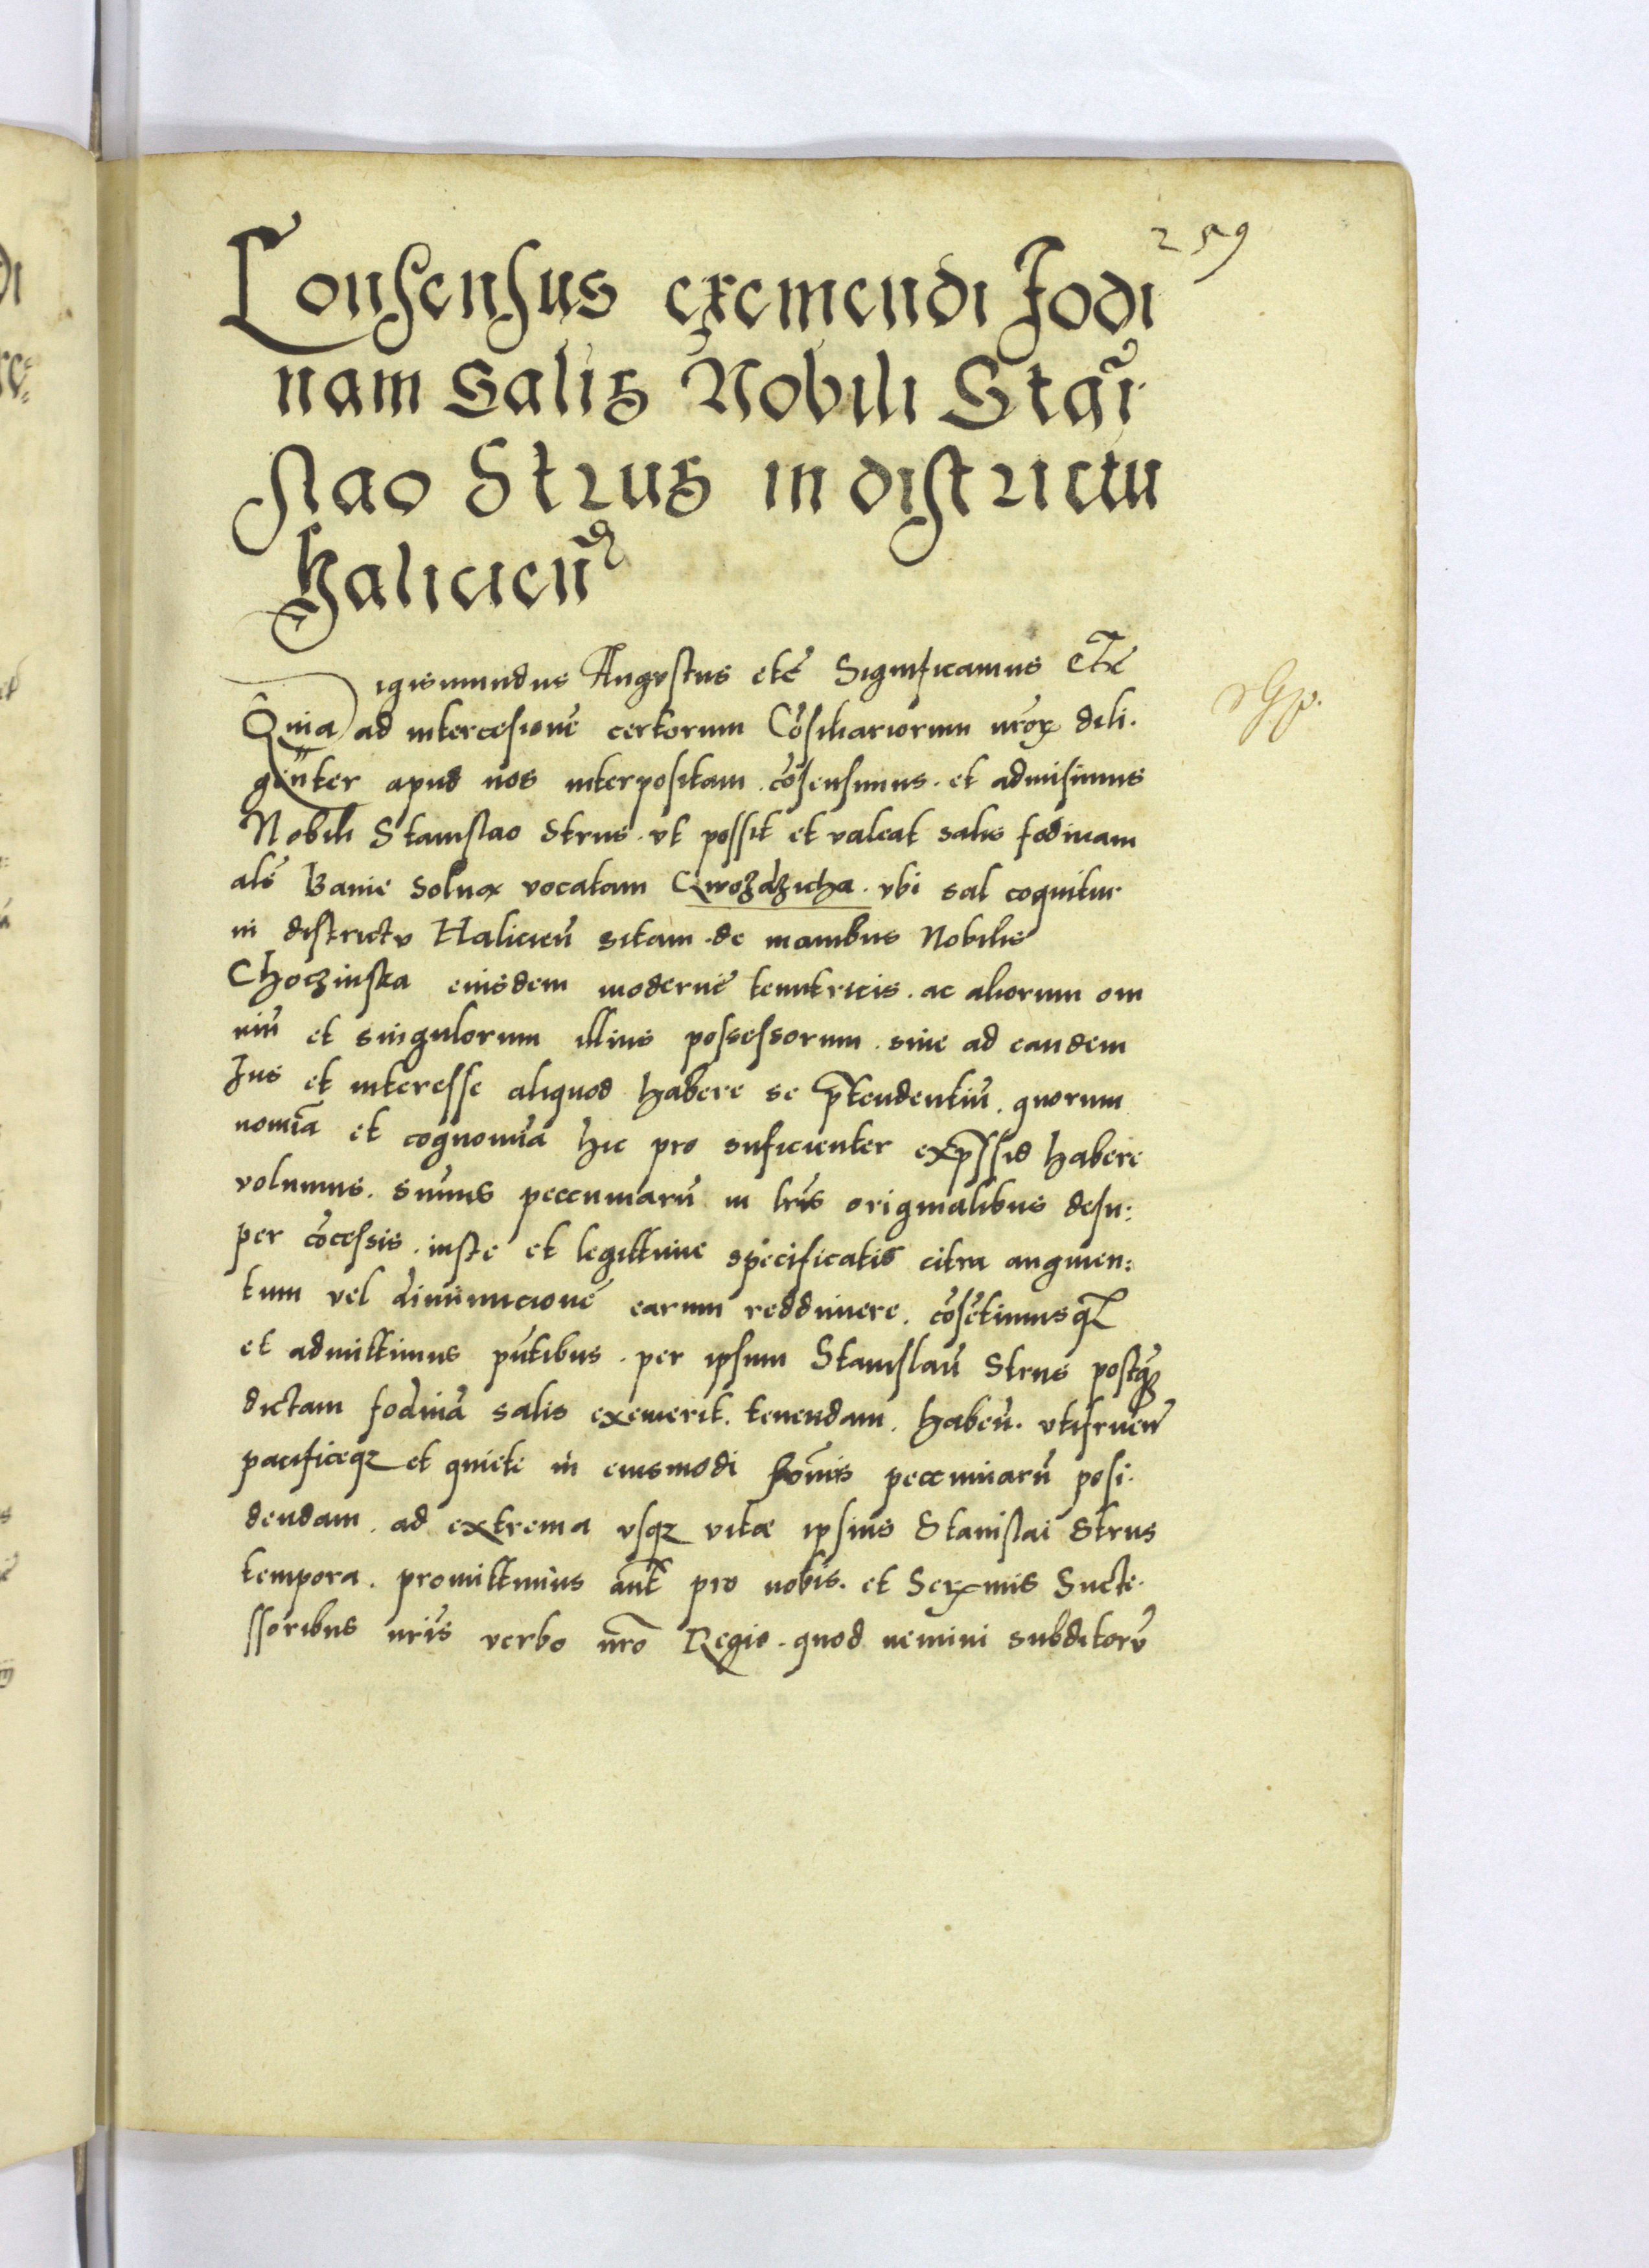 259
Consensus exemendi Fodi
nam Salis Nobili Stāi
slao Strus in districtu
Halicień
Sigismundus Augustus etc̄ Significamus Etc̄
Quia ad intercesionē certorum Cōsiliariorum nr̄orꝝ dili.
gēnter apud nos interpositam . cōsensimus . et admisimus
Nobili Stanislao Strus . vt possit et valeat salis fodinam
als̄ Banie Solnꝝ vocatam Gwozdzicha . vbi sal coquitur
in districtv Halicieñ sitam . de manibus Nobilis
Choczinska eiusdem modernē tenutricis . ac aliorum om
niū et singulorum illius possessorum . siue ad eandem
Ius et interesse aliquod habere se p̄tendentiū . quorum
nomīa et cognomīa hic pro suficienter exp̄ssis habere
volumus . sum̄is peccuniarū in lrīs originalibus desu:
per cōcessis . iuste et legittime specificatis citra augmen:
tum vel diminucionē earum reddimere . cōsētimusqꝫ
et admittimus pn̄tibus . per ipsum Stanislaū Strus postꝗ̄
dictam fodinā salis exemerit . tenendam . habeñ . vtifrueñ
pacificeqꝫ et quiete in eiusmodi som̄is peccuniarū posi.
dendam . ad extrema vsqꝫ vitæ ipsius Stanislai Strus
tempora . promittimus aūt pro nobis . et Serꝫmis Succe.
ssoribus nrīs verbo nr̄o Regio . quod nemini subditorū